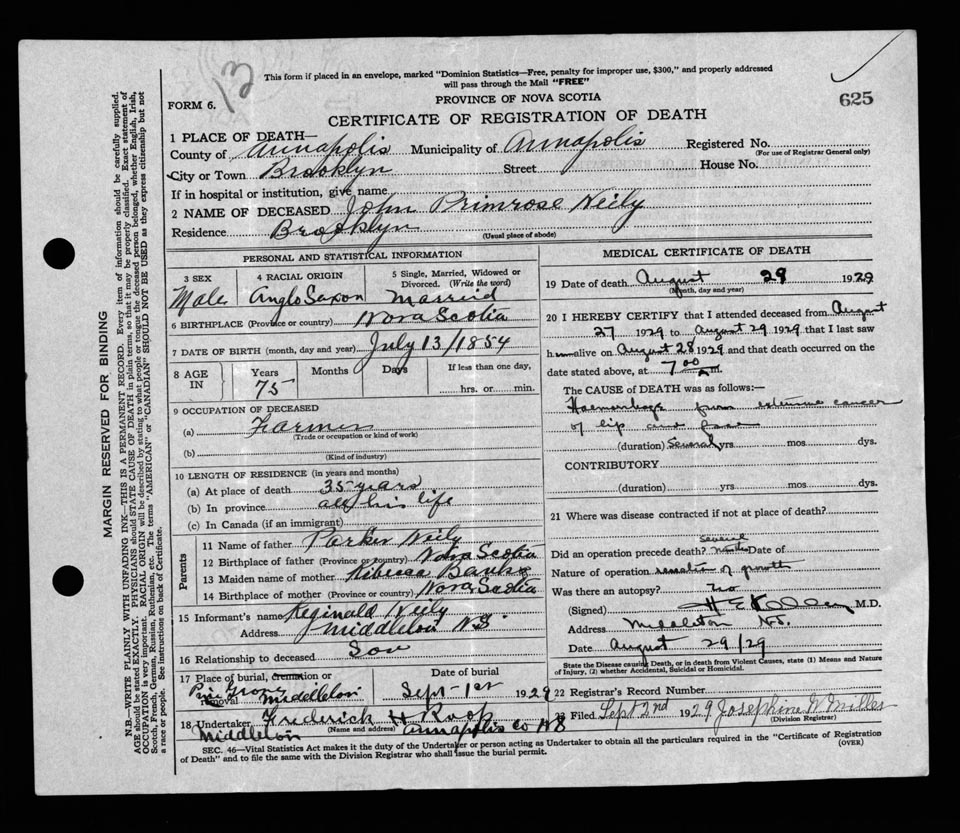 13
This form if placed in an envelope, marked "Dominion Statistics—Free, penalty for improper use, $300," and properly addressed
will pass through the Mail "FREE"
PROVINCE OF NOVA SCOTIA
FORM 6.
625
CERTIFICATE OF REGISTRATION OF DEATH
1 PLACE OF DEATH—
County of Annapolis Municipality of Annapolis Registered No.
(For use of Registrar General only)
City or Town Brooklyn Street House No.
If in hospital or institution, give name
2 NAME OF DECEASED John Primrose Neily
Residence Brooklyn
(Usual place of abode)
PERSONAL AND STATISTICAL INFORMATION
3 SEX 4 RACIAL ORIGIN 5 Single, Married, Widowed or
Divorced. (Write the word)
Male Anglo Saxon Married
6 BIRTHPLACE (Province or country) Nova Scotia
7 DATE OF BIRTH (month, day and year) July 13/1854
8 AGE IN Years Months Days If less than one day,
75 hrs. or min.
9 OCCUPATION OF DECEASED
(a) Farmer
(Trade or occupation or kind of work)
(b)
(Kind of industry)
10 LENGTH OF RESIDENCE (in years and months)
(a) At place of death 35 years
(b) In province all his life
(c) In Canada (if an immigrant)
Parents
11 Name of father Parker Neily
12 Birthplace of father (Province or country) Nova Scotia
13 Maiden name of mother Rebecca Banks
14 Birthplace of mother (Province or country) Nova Scotia
15 Informant's name Reginald Neily
Address Middleton N.S.
16 Relationship to deceased Son
17 Place of burial, cremation or removal Date of burial
Pine Grove Middleton Sept-1st 1929
18 Undertaker Frederick H Roop
(Name and address)
Middleton Annapolis Co NS
MEDICAL CERTIFICATE OF DEATH
19 Date of death August 29 1929
(Month, day and year)
20 I HEREBY CERTIFY that I attended deceased from August
27 1929 to August 29 1929 that I last saw
him alive on August 28 1929 and that death occurred on the
date stated above, at 7 00 AM.
The CAUSE OF DEATH was as follows:—
Haemorrhage from extensive cancer
of lip and face
(duration) Several yrs. mos. dys.
CONTRIBUTORY
(duration) yrs. mos. dys.
21 Where was disease contracted if not at place of death?
Several
Did an operation precede death? Date of
Nature of operation of growth
Was there an autopsy? No
(Signed) M.D.
Address Middleton N.S.
Date August 29/29
State the Disease causing Death, or in death from Violent Causes, state (1) Means and Nature
of Injury, (2) whether Accidental, Suicidal or Homicidal.
22 Registrar's Record Number
23 Filed Sept 2nd 1929 Josephine W Miller
(Division Registrar)
SEC. 46—Vital Statistics Act makes it the duty of the Undertaker or person acting as Undertaker to obtain all the particulars required in the "Certificate of Registration
of Death" and to file the same with the Division Registrar who shall issue the burial permit.
(OVER)
MARGIN RESERVED FOR BINDING
N.B.—WRITE PLAINLY WITH UNFADING INK—THIS IS A PERMANENT RECORD. Every item of information should be carefully supplied.
AGE should be stated EXACTLY. PHYSICIANS should STATE CAUSE OF DEATH in plain terms, so that it may be properly classified. Exact statement of
OCCUPATION is very important. RACIAL ORIGIN will be described by stating to what people or tongue the deceased person belonged, whether English, Irish,
Scotch, French, German, Russian, Ruthenian, etc. The terms "AMERICAN" or "CANADIAN" SHOULD NOT BE USED as they express citizenship but not
a race or people. See instructions on back of Certificate.